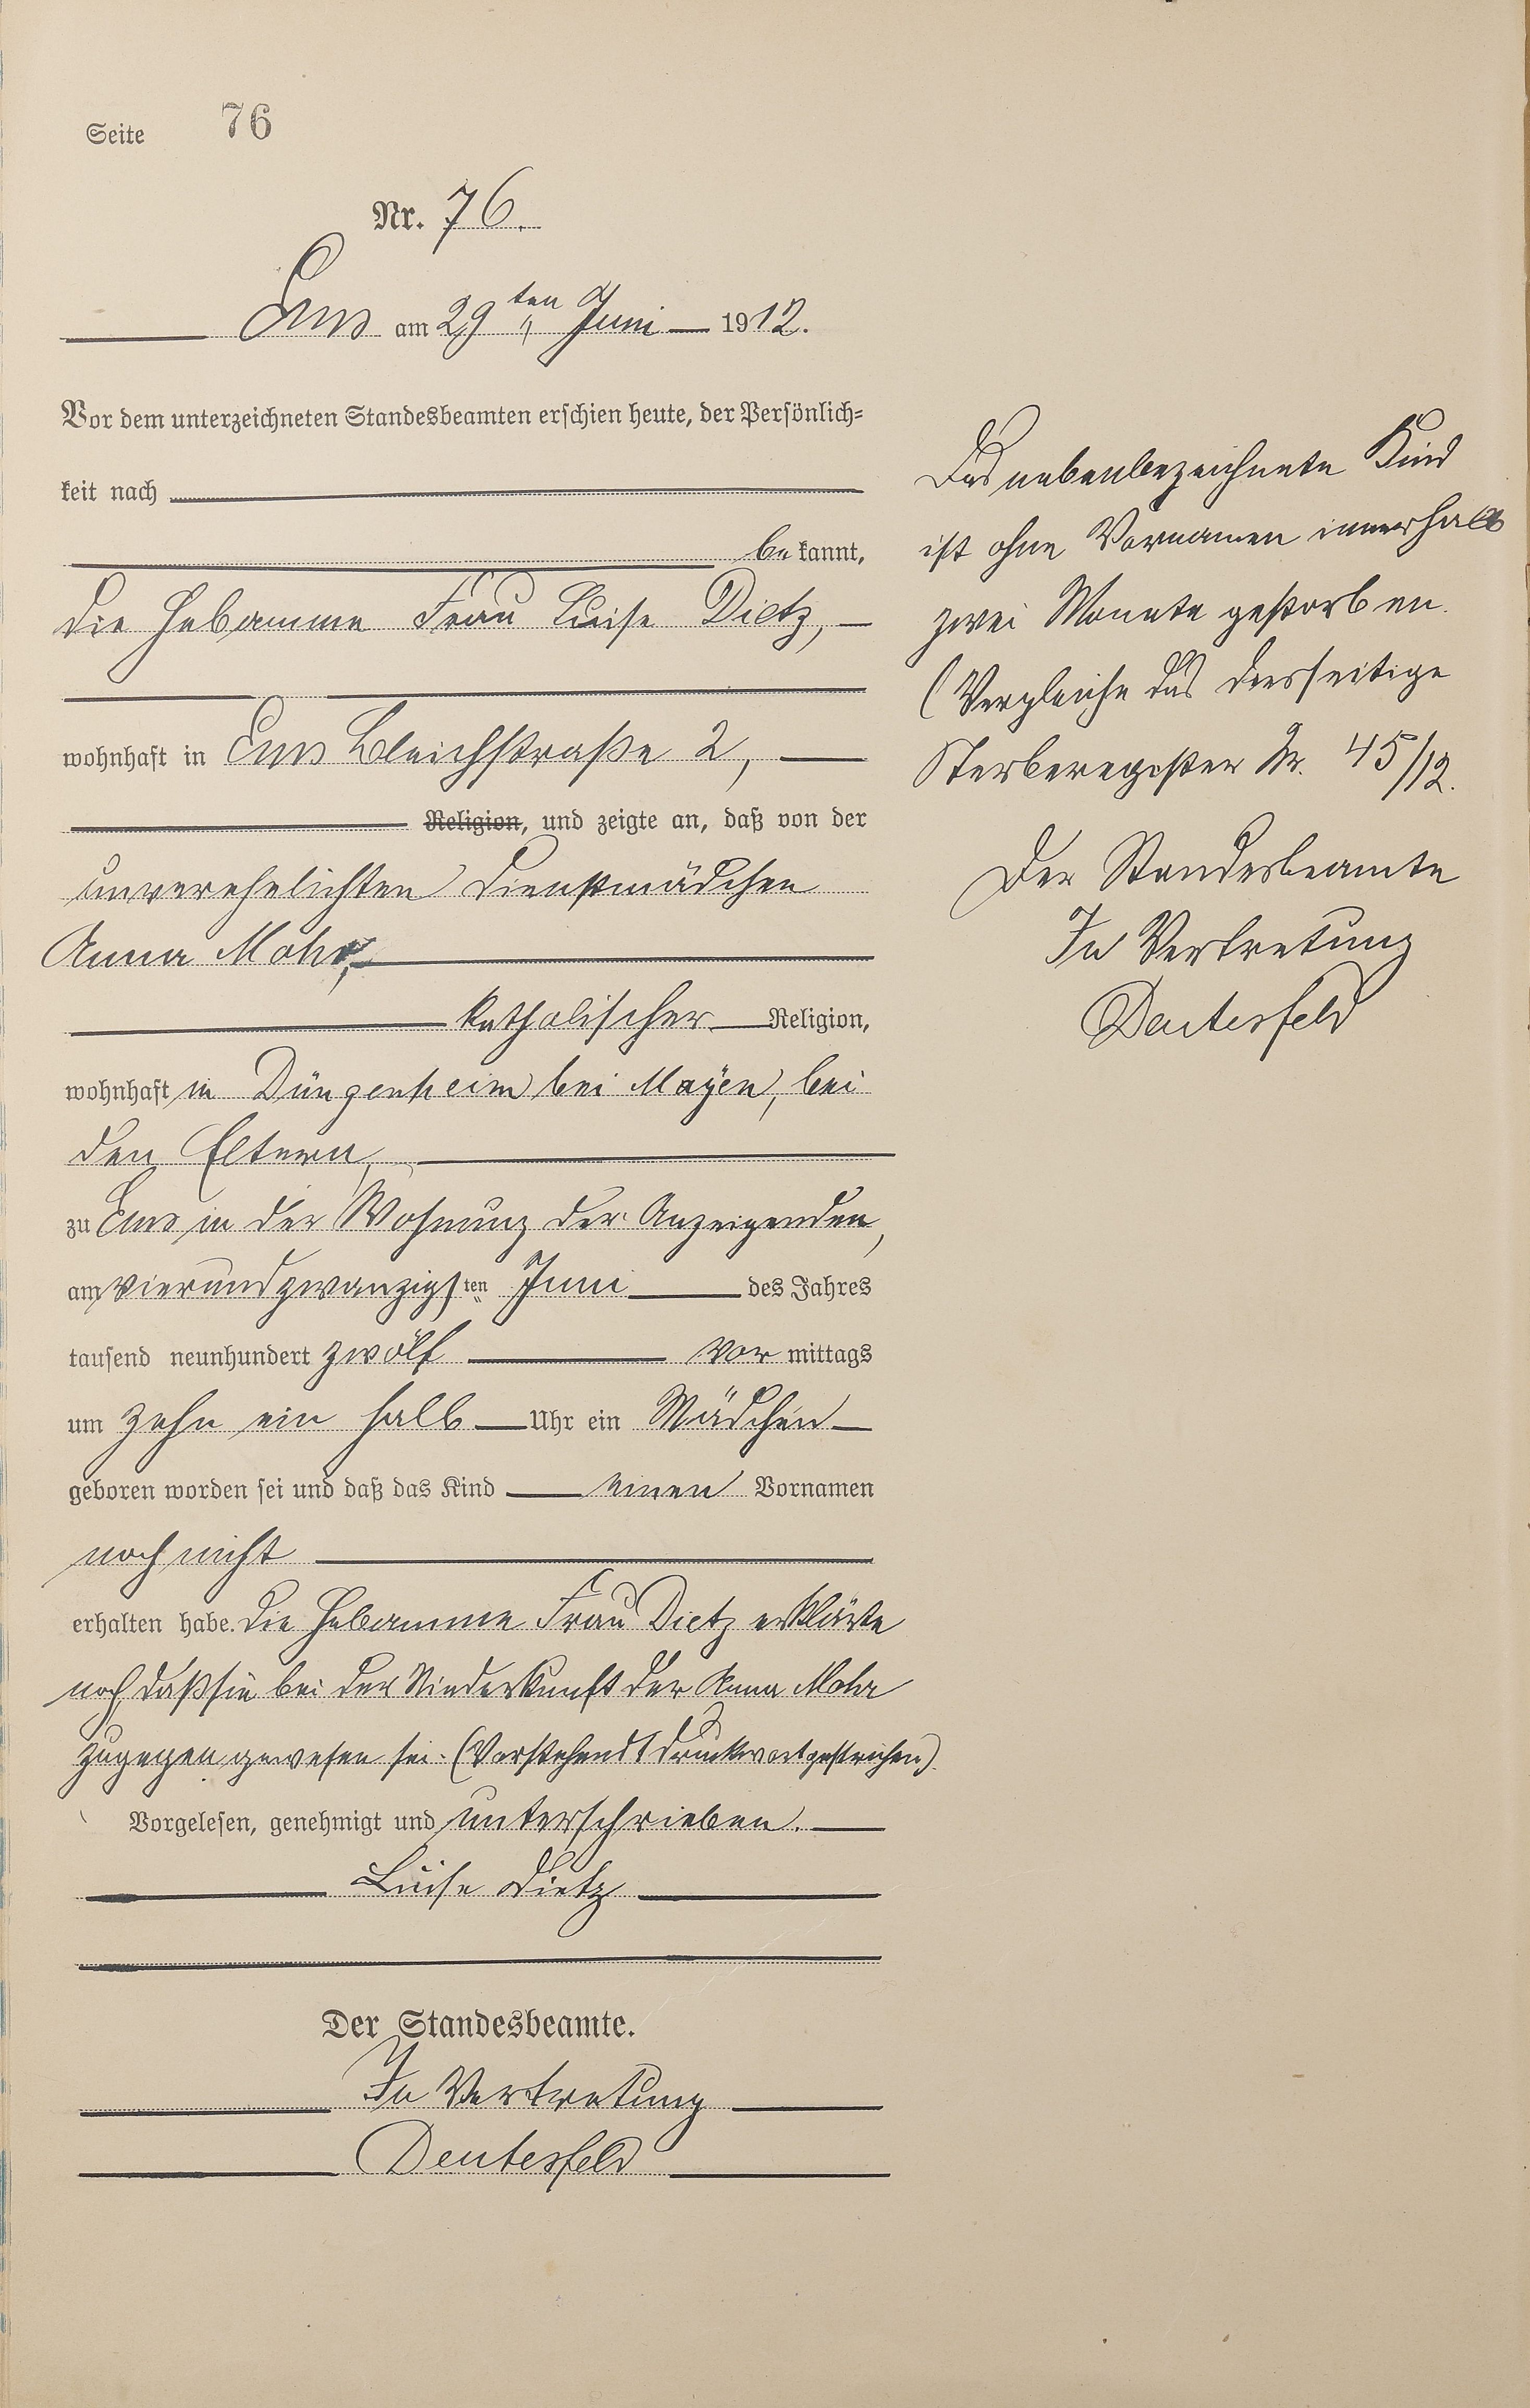 Seite 76
Nr. 76.
Ems am 29ten Juni 1912.
Vor dem unterzeichneten Standesbeamten erschien heute, der Persönlich=
keit nach
bekannt,
die Hebamme Frau Luise Dietz,
wohnhaft in Ems Bleichstraße 2,
Religion, und zeigte an, daß von der
unverehelichten Dienstmädchen
Anna Mohr,
katholischer Religion,
wohnhaft in Düngenheim bei Mayen, bei
den Eltern,
zu Ems in der Wohnung der Anzeigenden,
am vierundzwanzigsten Juni des Jahres
tausend neunhundert zwölf vormittags
um zehn ein halb Uhr ein Mädchen
geboren worden sei und daß das Kind einen Vornamen
noch nicht
erhalten habe. Die Hebamme Frau Dietz erklärte
noch, daß sie bei der Niederkunft der Anna Mohr
zugegen gewesen sei. (Vorstehend 1 Druckwort gestrichen).
Vorgelesen, genehmigt und unterschrieben.
Luise Dietz
Der Standesbeamte.
In Vertretung
Deutesfeld
Das nebenbezeichnete Kind
ist ohne Vornamen innerhalb
zwei Monate gestorben.
(Vergleiche das diesseitige
Sterberegister Nr. 45/12.
Der Standesbeamte
In Vertretung
Deutesfeld